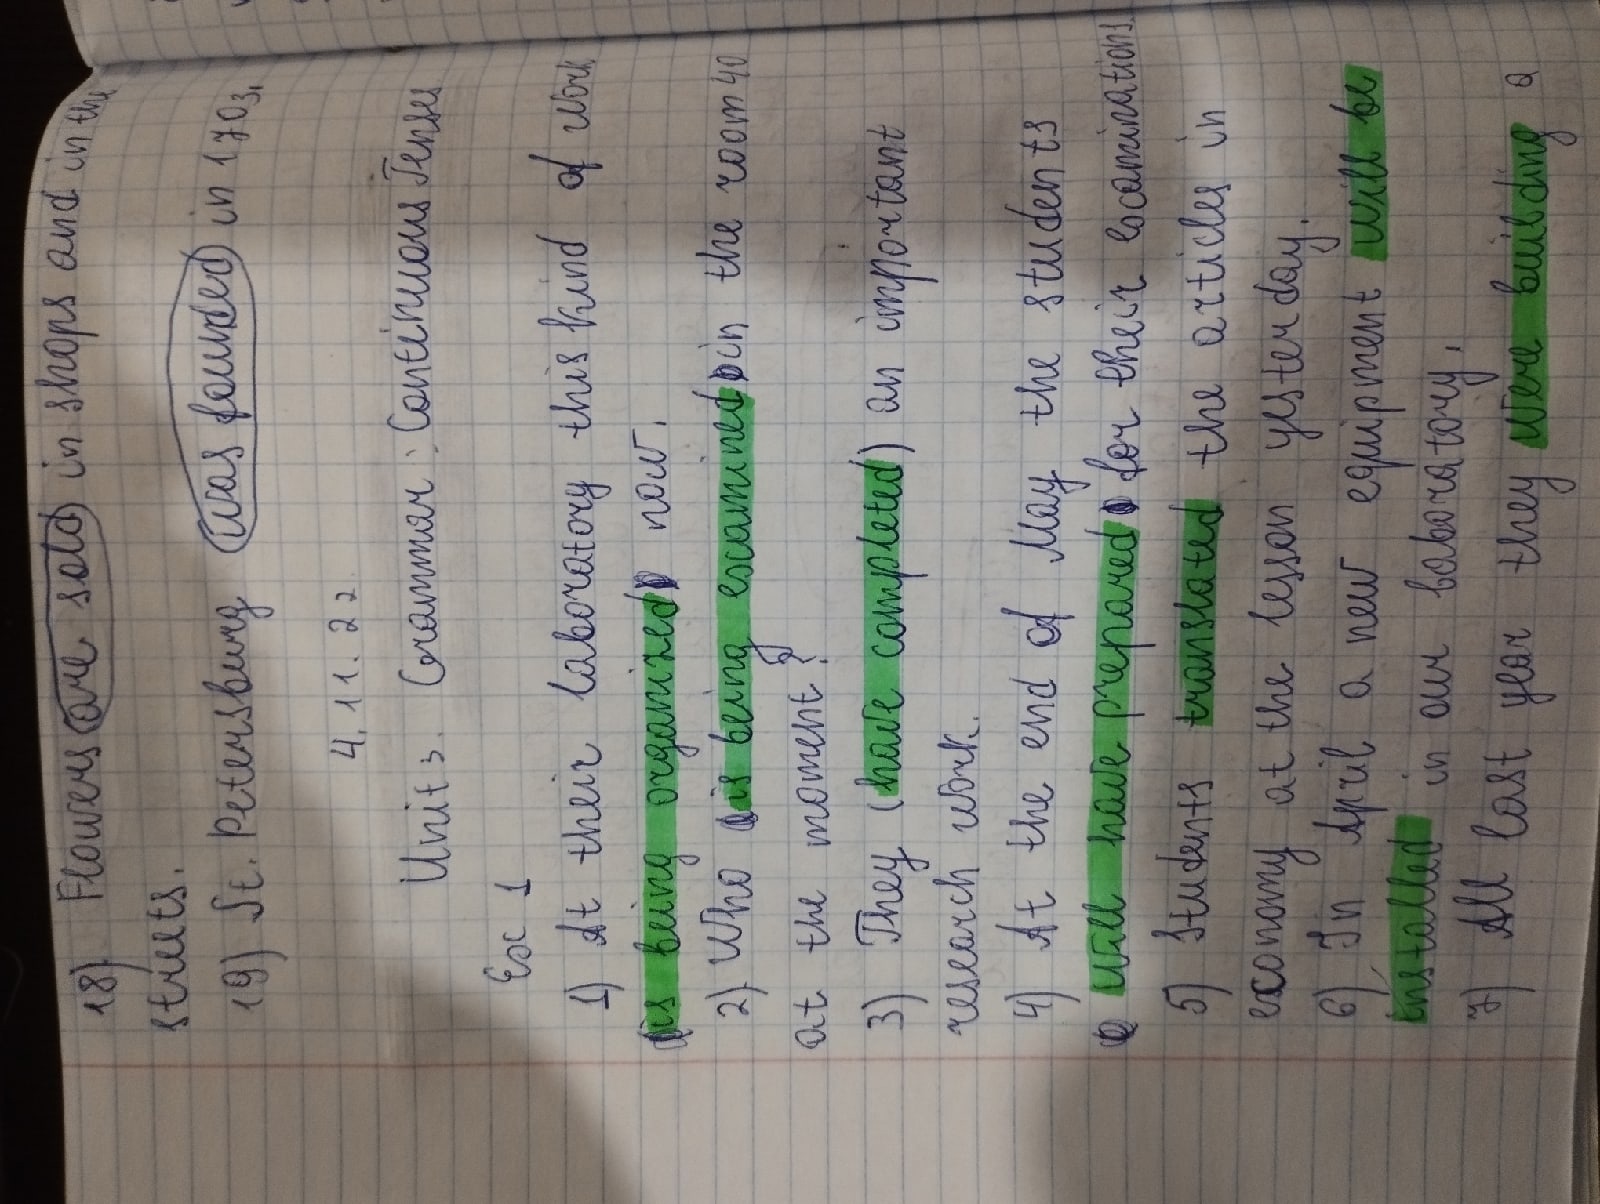 18) Flowers are sold in shops and in the
streets.
19) St. Petersburg was founded in 1703.
4.11.22
Unit 3. Grammar: Continuous Tenses
Ex 1
1) At their laboratory this kind of work
is being organized now.
2) Who is being examined in the room 40
at the moment?
3) They (have completed) an important
research work.
4) At the end of May the students
will have prepared for their examinations
5) Students translated the articles in
economy at the lesson yesterday.
6) In April a new equipment will be
installed in our laboratory.
7) All last year they were building a